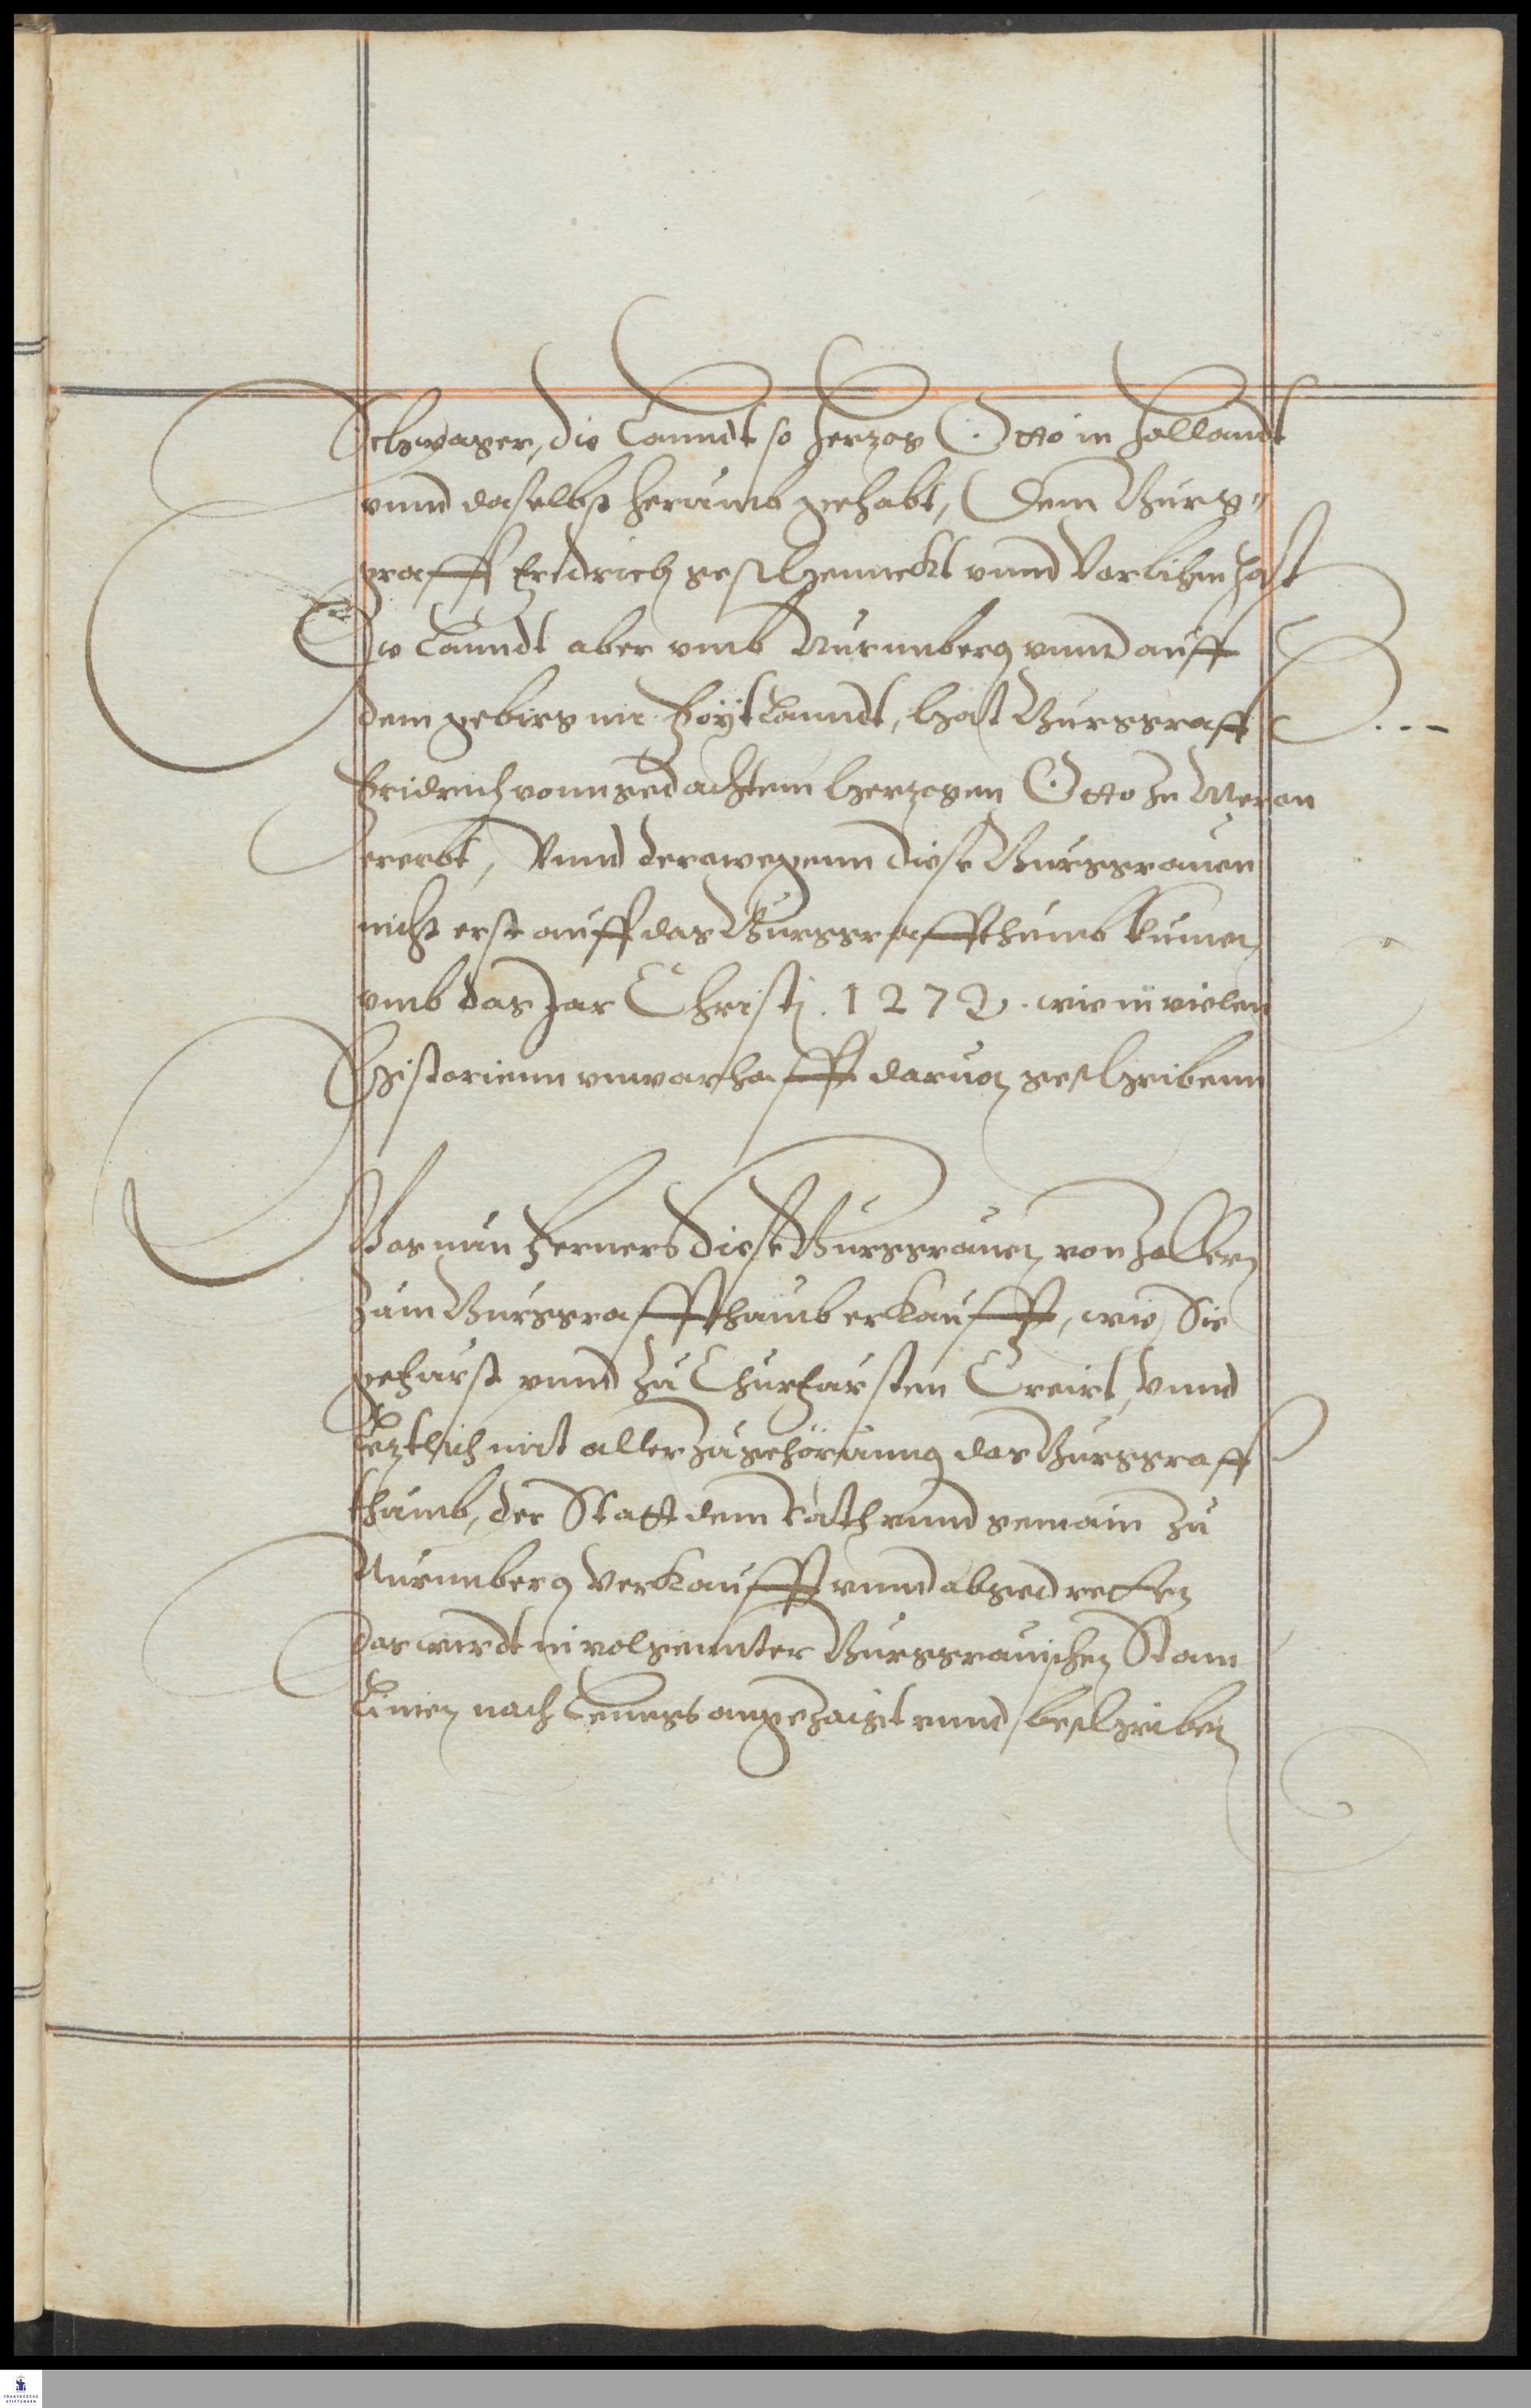 Schwager, die Lanndt so Herzog Otto in Hollandt
vnnd daselbst herumb gehabt, Dem Burg-
graff Fridrich geschennckt vnnd Verlihen hatt
Die Lanndt aber vmb Nurmberg vnnd auff
dem gebirg im Foÿtlanndt, Hat Burggraff
Fridrich vonn gedachtem Herzogen Otto zu Meran
ererbt, Vnnd derowegenn diese Burggrauen
nicht erst auff das Burggraffthumb kumen
vmb das Jar Christj. 1272. wie in vielen
Historienn vnwarhafft daruon geschribenn
Was nun Ferners diese Burggrauen von Zollern
zum Burggraffthumb erkaufft, wie Sie
gefurst vnnd zu Churfursten Creirt, Vnnd
Leztlich mit aller zugehörunng das Burggraff
thumb, der Statt dem Rath vnnd gemain zu
Nurmberg Verkaufft vnnd abgedretten
das wirdt in volgennter Burggrauischen Stam
Linien nach Lenngs angezaigt vnnd beschriben
FRANCKESCHE
STIFTUNGEN